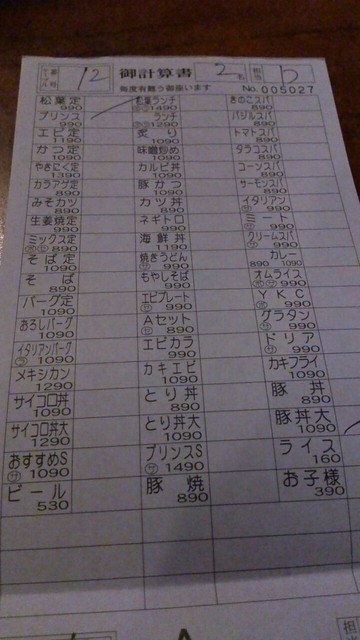 テーブル 番号 12 御計算書 2名 担当
毎度有難う御座います No. 005027
松葉定 990 松葉ランチ 1490 きのこスパ 890
プリンス 990 ランチ 990 バジルスパ 890
エビ定 1190 炙り 1090 トマトスパ 890
かつ定 1090 味噌炒め 1090 タラコスパ 890
やきにく定 1390 カルビ丼 1090 コーンスパ 890
カラアゲ定 890 豚かつ 1090 サーモンスパ 890
みそカツ 890 カツ丼 890 イタリアン サ 990
生姜焼定 990 ネギトロ 990 ミート サ 990
ミックス定 890 海鮮丼 1190 クリームスパ サ 990
そば定 1090 焼きうどん サ 990 カレー 890 1090
そば 890 もやしそば 990 オムライス サ 990
バーグ定 1090 エビプレート サ 990 YKC サ 990
おろしバーグ 1090 Aセット サ 890 グラタン サ 990
イタリアンバーグ ラ 1090 エビカラ 990 ドリア サ 990
メキシカン 1290 カキエビ 1090 カキフライ 1090
サイコロ丼 1090 とり丼 890 豚丼 890
サイコロ丼大 1290 とり丼大 1090 豚丼大 1090
おすすめS サ 1090 プリンスS サ 1490 ライス 160
ビール 530 豚焼 890 お子様 390
担